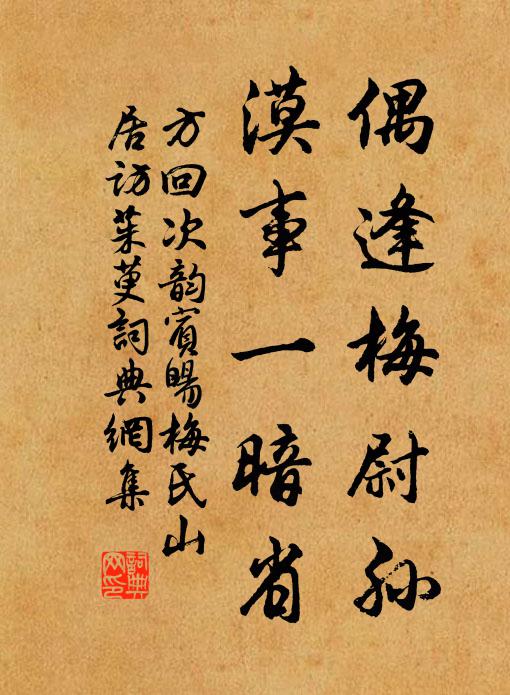 偶逢梅尉孙
漠事一暗省
方回次韵賓暘梅氏山
居访茱萸詞典網集
詞典
网印